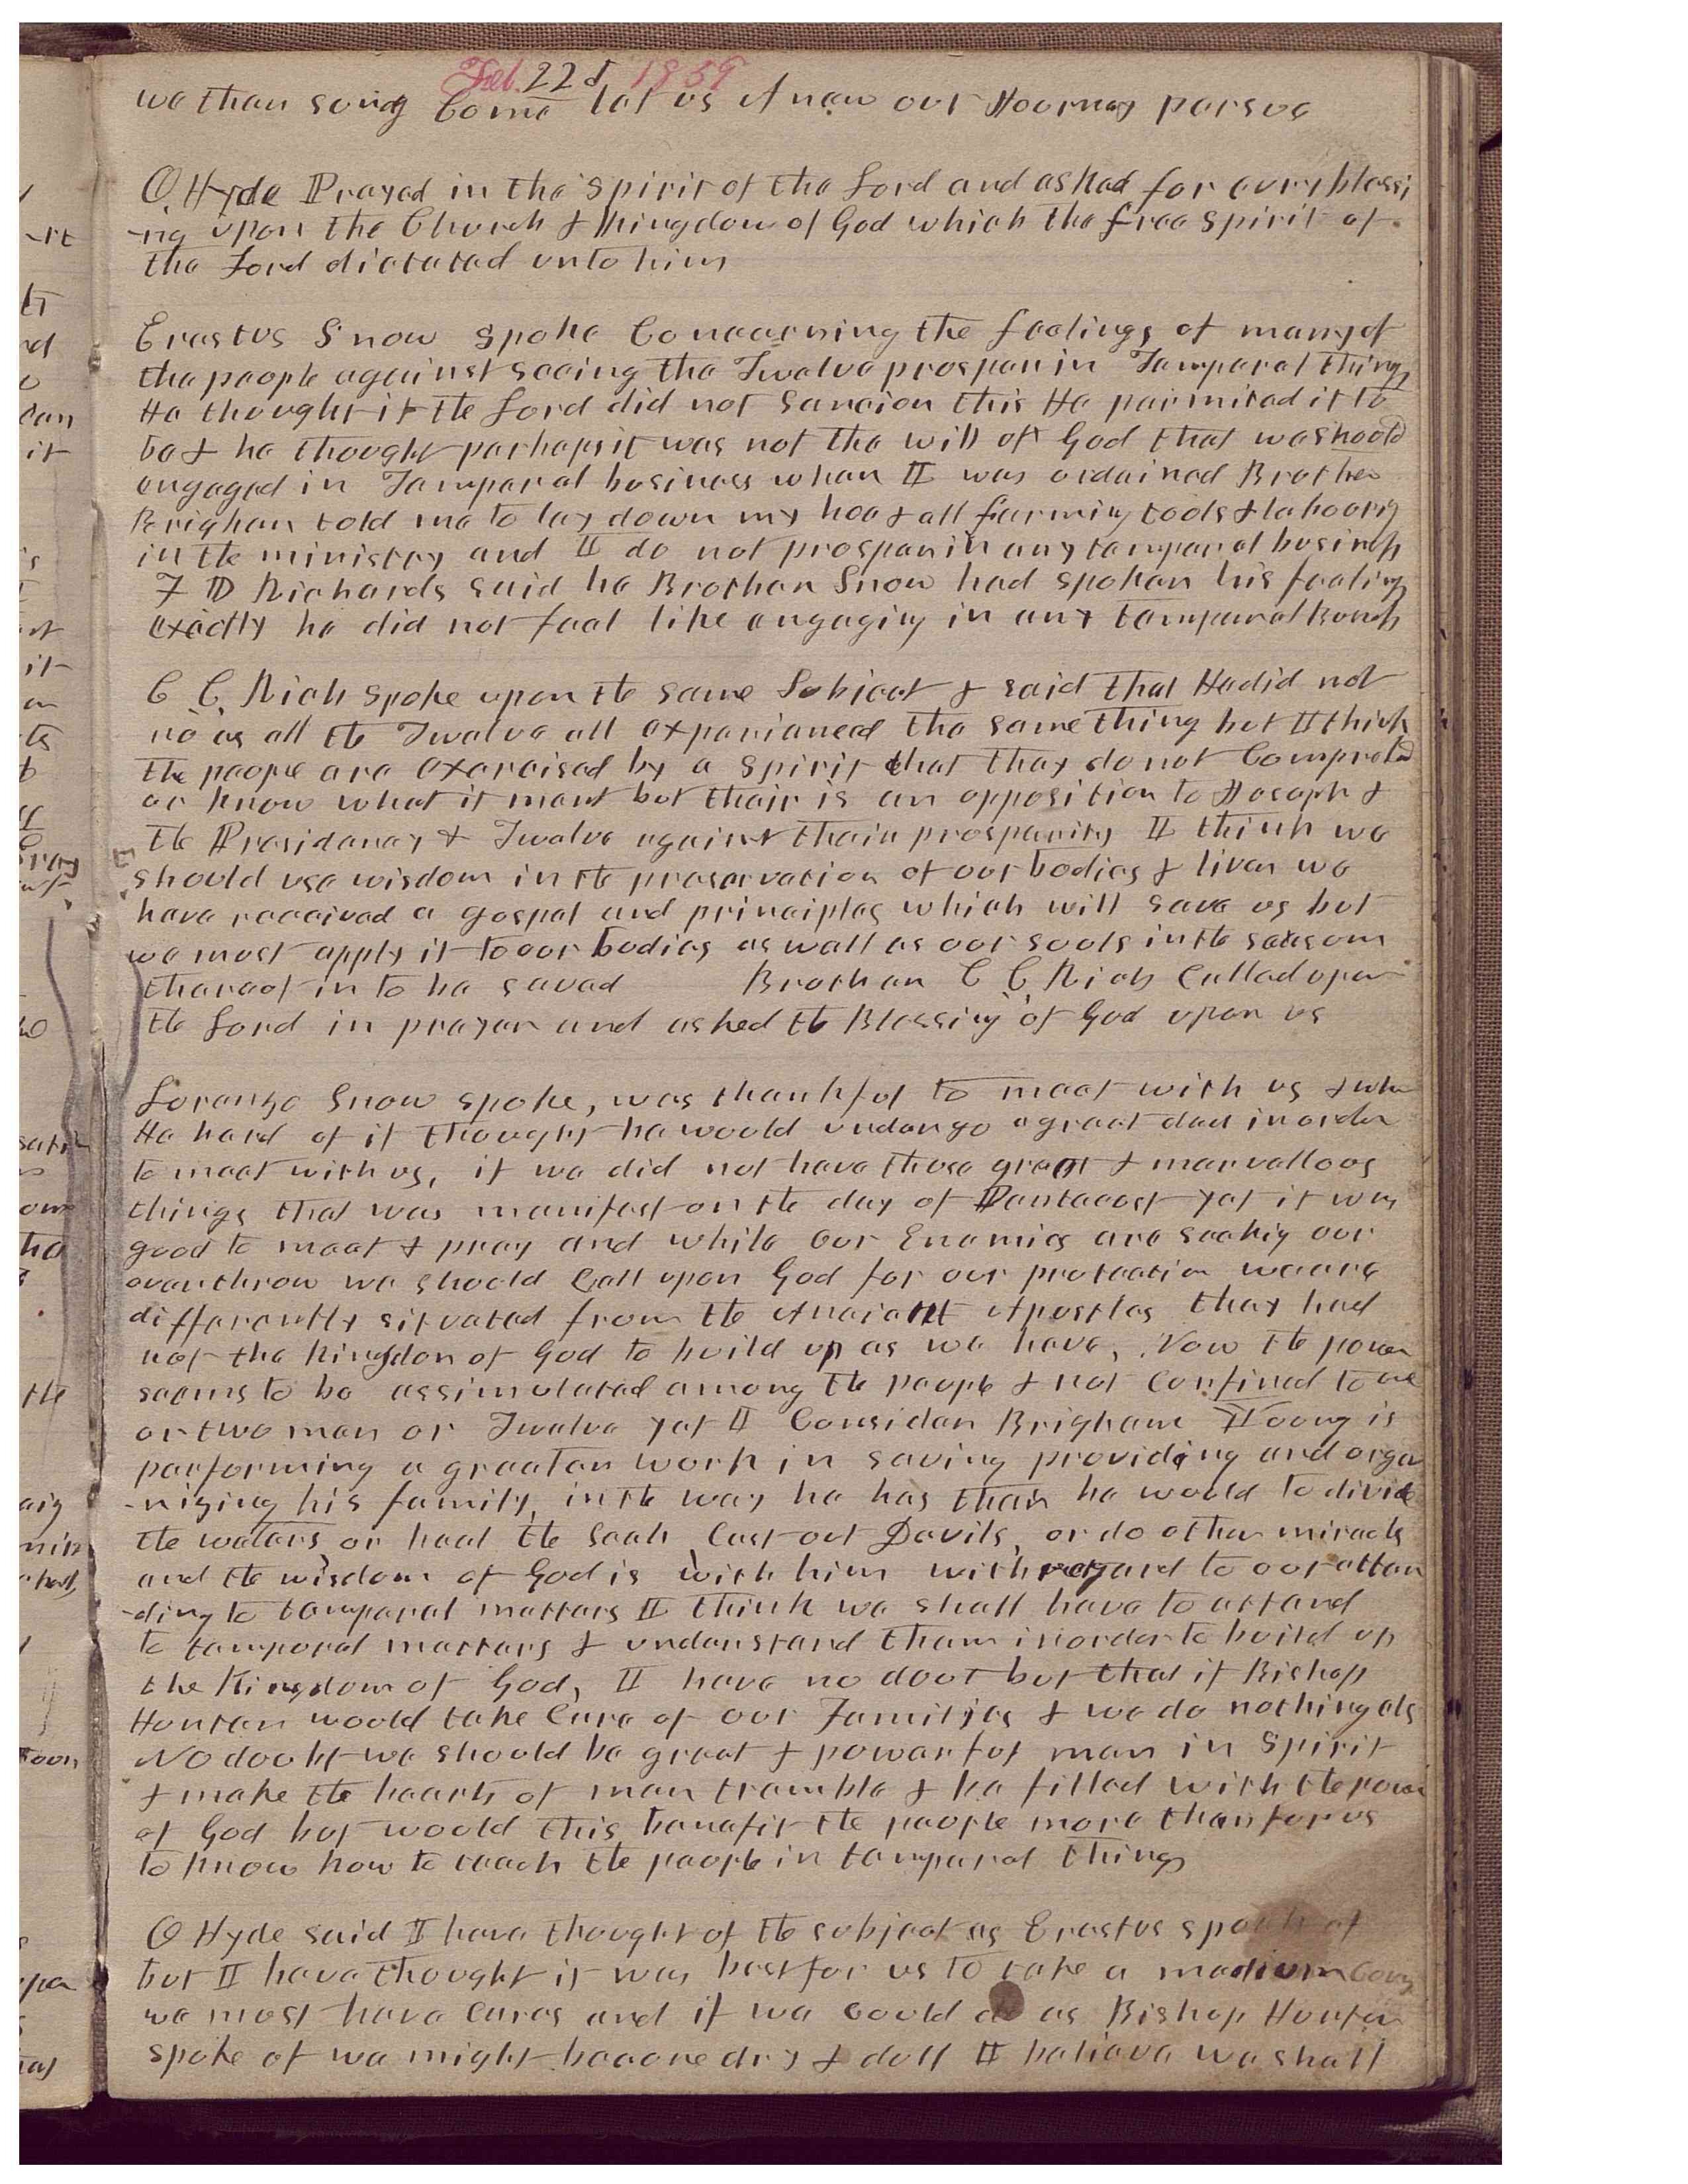 Feb. 22d 1859
we then sung Come let us Anew our Journey persue
O. Hyde Prayed in the spirit of the Lord and asked for evry blessi
-ng upon the Church & Kingdom of God which the free spirit of
the Lord dictated unto him
Erastus Snow spoke Concerning the feelings of many of
the people against seeing the Twelve prosper in Temperal things
He thought if the Lord did not sancion this He permited it to
be & he thought perhaps it was not the will of God that we should
engaged in Temperal business when I was ordained Brother
Brigham told me to lay down my hoe & all farming tools & laboorig
in the ministry and I do not prosper in any temperal business
F D Richards said he Brother Snow had spoken his feelings
exactly he did not feel like engaging in any temperal Buness
C. C. Rich spoke upon the same Subject & said that He did not
no as all the Twelve all experianced the same thing but I think
the people are exercised by a spirit that they do not Comprehend
or know what it ment but their is an opposition to Joseph &
the Presidency & Twelve against their prosperity I think we
should use wisdom in the preservation of our bodies & lives we
have received a gospel and principles which will save us but
we must apply it to our bodies as well as our souls in the seasom
thereof in to be saved Brother C. C. Rich Called upon
the Lord in prayer and asked the Blessing of God upon us
Lorenzo Snow spoke, was thankful to meet with us & when
He herd of it thought he would undergo a great deal in order
to meet with us, if we did not have those great & marvellous
things that was manifest on the day of Pentecost yet it was
good to meet & pray and while our Enemies are seekig our
overthrow we should Call upon God for our protection we are
differently situated from the Anciant Apostles they had
not the Kingdon of God to build up as we have, Now the power
seems to be assimulated among the people & not Confined to one
or two men or Twelve yet I Consider Brigham Young is
performing a greater work in saving providing and orga
-nizing his family, in the way he has than he would to divide
the waters or heal the seak, Cast out Devils, or do other miracls
and the wisdom of God is with him with regard to our atten
-ding to temperal matters I think we shall have to attend
to temporal matters & understand them in order to build up
the Kingdom of God, I have no dout but that if Bishop
Hunter would take Care of our Familjes & we do nothing els
No doubt we should be great & powerful men in spirit
& make the hearts of men tremble & be filled with the power
of God but would this benefit the people more than for us
to know how to teach the people in temperal things
O Hyde said I have thought of the subject as Erastus spoak of
but I have thought it was best for us to take a medium Cours
we must have Cares and if we Could do as Bishop Hunter
spoke of we might become dry & dull I believe we shall